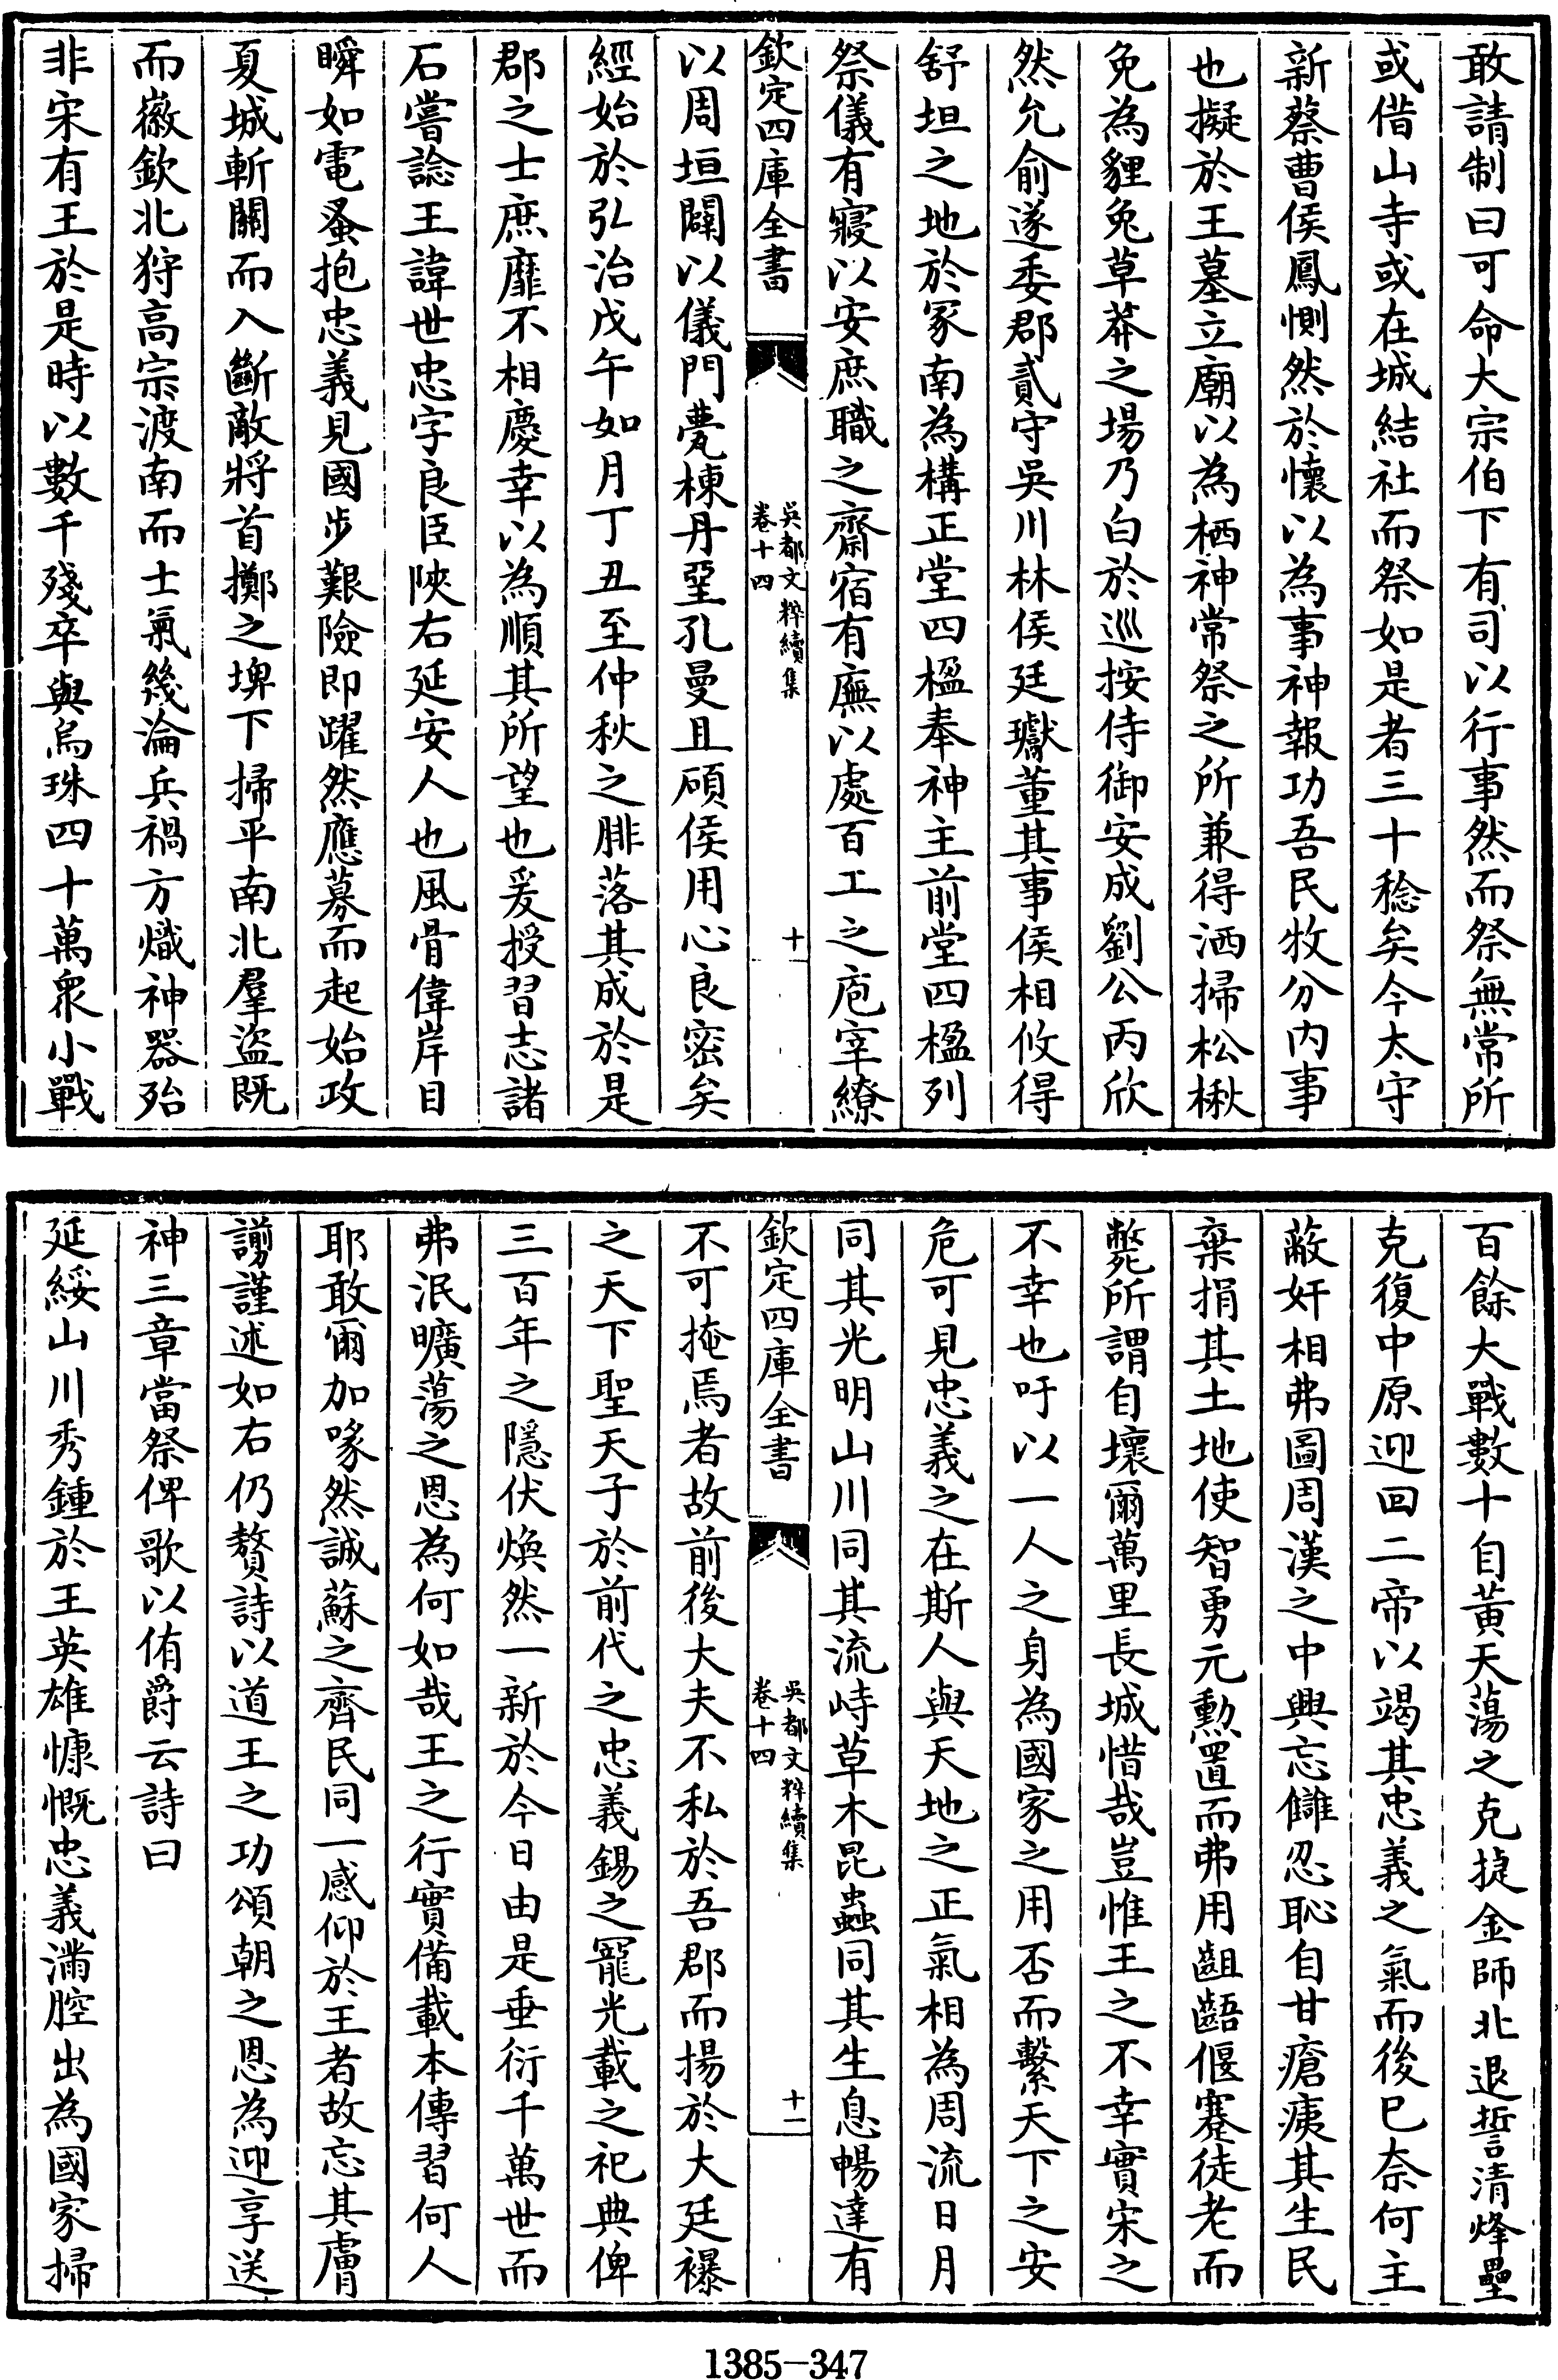 敢請制曰可命大宗伯下有司以行事然而祭無常所
或借山寺或在城結社而祭如是者三十稔矣今太守
新蔡曹侯鳳惻然於懷以為事神報功吾民牧分内事
也擬於王墓立廟以為栖神常祭之所兼得洒掃松楸
免為貍兔草莽之場乃白於巡按侍御安成劉公丙欣
然允俞遂委郡貳守吳川林侯廷瓛董其事侯相攸得
舒坦之地於冢南為構正堂四楹奉神主前堂四楹列
祭儀有寢以安庶職之齋宿有廡以處百工之庖宰繚
欽定四庫全書
吳都文粹續集
卷十四
十
以周垣闢以儀門甍棟丹堊孔曼且碩侯用心良密矣
經始於弘治戊午如月丁丑至仲秋之腓落其成於是
郡之士庶靡不相慶幸以為順其所望也爰授習志諸
石嘗諗王諱世忠字良臣陜右延安人也風骨偉岸目
瞬如電蚤抱忠義見國步艱險即躍然應募而起始政
夏城斬關而入斷敵將首擲之埤下掃平南北羣盜既
而徽欽北狩高宗渡南而士氣幾淪兵禍方熾神器殆
非宋有王於是時以數千殘卒與烏珠四十萬衆小戰
百餘大戰數十自黃天蕩之克捷金師北退誓清烽壘
克復中原迎回二帝以竭其忠義之氣而後已奈何主
蔽奸相弗圖周漢之中興忘讎忍恥自甘瘡痍其生民
棄捐其土地使智勇元勲置而弗用齟齬偃蹇徒老而
斃所謂自壞爾萬里長城惜哉豈惟王之不幸實宋之
不幸也吁以一人之身為國家之用否而繫天下之安
危可見忠義之在斯人與天地之正氣相為周流日月
同其光明山川同其流峙草木昆蟲同其生息暢達有
欽定四庫全書
吳都文粹續集
卷十四
十一
不可掩焉者故前後大夫不私於吾郡而揚於大廷襮
之天下聖天子於前代之忠義錫之寵光載之祀典俾
三百年之隱伏煥然一新於今日由是垂衍千萬世而
弗泯曠蕩之恩為何如哉王之行實備載本傳習何人
耶敢爾加喙然誠蘇之齊民同一感仰於王者故忘其膚
謭謹述如右仍贅詩以道王之功頌朝之恩為迎享送
神三章當祭俾歌以侑爵云詩曰
延綏山川秀鍾於王英雄慷慨忠義滿腔出為國家掃
1385-347